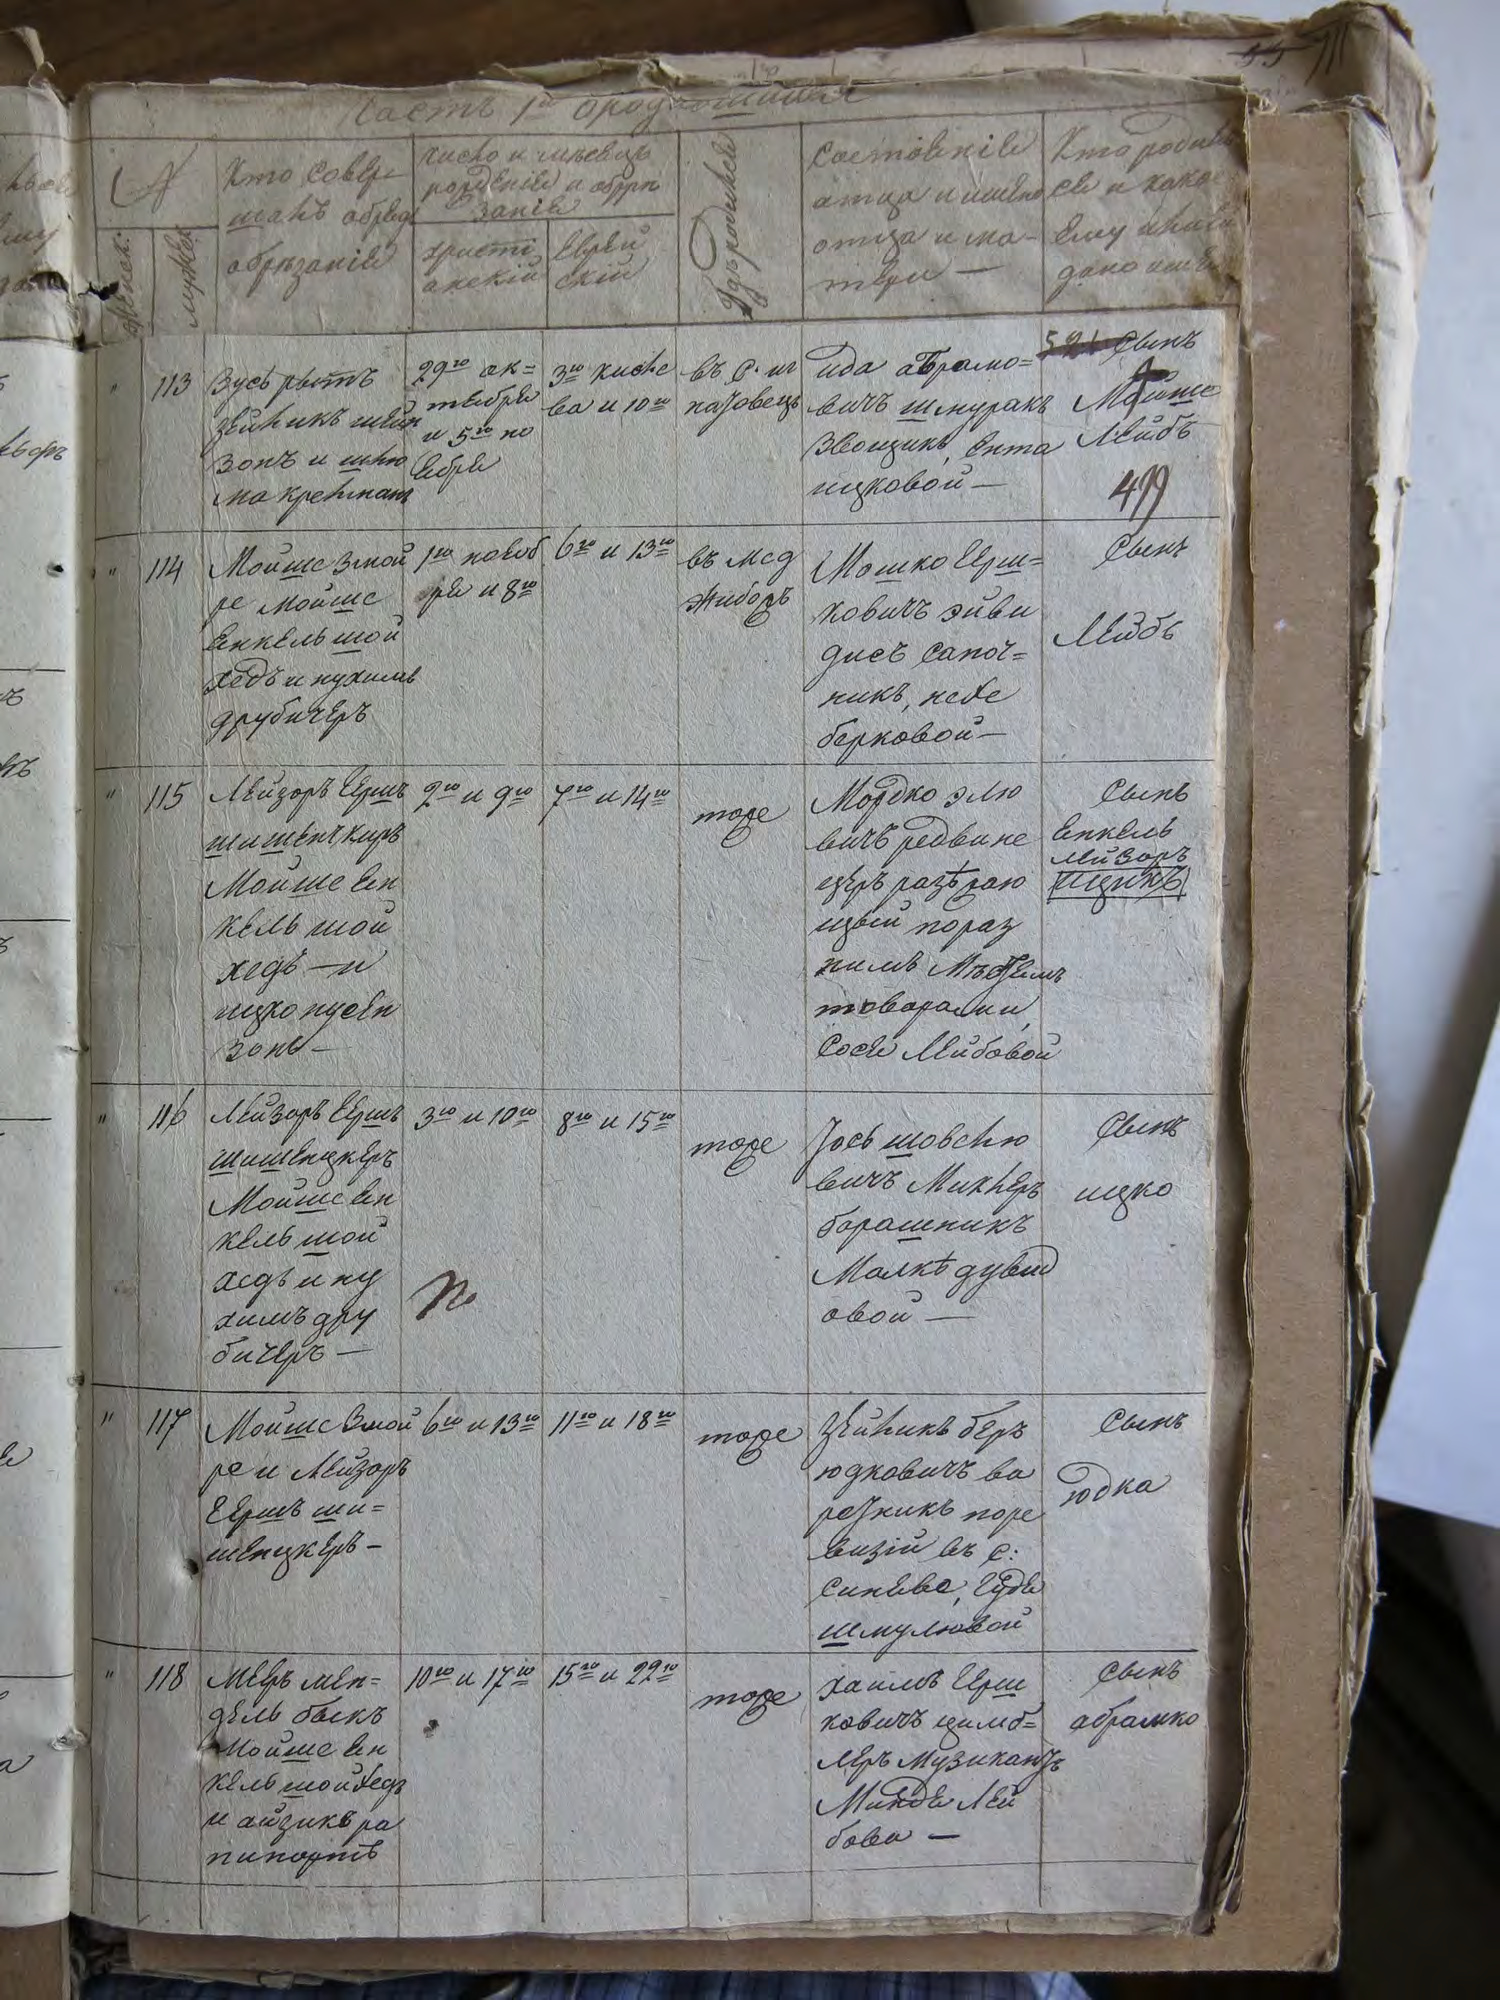 Часть 1я о родившихся
№
Женск:
мужеск
Кто совер-
шалъ обрядъ
обрѣзанія
число и месецъ
рожденія и обрѣ-
занія
христі
анскій
Еврей
скій
Гдѣ родился
Состояніе
отца и имена
отца и ма-
тери —
Кто родил
ся и какое
ему
дано имя
" 113
Зусь
и
29го ок-
тебря
и 5го но
ебря
3го кисле
ва и 10го
въ с.
Ида абрамо-
вичъ шмуракъ
Звощикъ, Ента
ицковой —
Сынъ
Мойше
Лейбъ
499
" 114
Мойше Змой
ре Мойше
Енкель шой
хедъ и нухимъ
друбичеръ
1го нояб
ря и 8го
6го и 13го
въ Мед
жиборъ
Мошко Герш-
ковичъ эйви
дисъ сапож-
никъ, нехе
берковой —
Сынъ
Лейбъ
" 115
Лейзоръ Гершъ
шишенцкеръ
Мойше Ен
кель шой
хедъ — и
ицко нусен
зонъ —
2го и 9го
7го и 14го
тоже
Мордко элю
вичъ редвине
церъ разѣзжаю
щый по раз
нимъ Мѣстемъ
товарами,
Сося Лейбовой
Сынъ
Енкель
Лейзоръ
ицикъ
" 116
Лейзоръ Гершъ
шишенцкеръ
Мойше Ен
кель шой
хедъ и ну
химъ дру
бичеръ —
3го и 10го
8го и 15го
тоже
Іось шовсѣю
вичъ
барашникъ
Малкѣ дувид
овой —
Сынъ
ицко
" 117
Мойше Змой
ре и Лейзоръ
Гершъ ши-
шенцкеръ —
6го и 13го
11го и 18го
тоже
Зейликъ беръ
юдковичъ ва
резникъ по ре
визіи въ с:
Синяве, Гудя
шмулювой
Сынъ
юдка
" 118
Меръ мен-
дель быкъ
Мойше Ен
кель шойхедъ
и айзикъ ра
пипортъ
10го и 17го
15го и 22го
тоже
хаимъ Герш
ковичъ цимб-
леръ музикантъ
Миндя Лей
бова —
Сынъ
абрамко